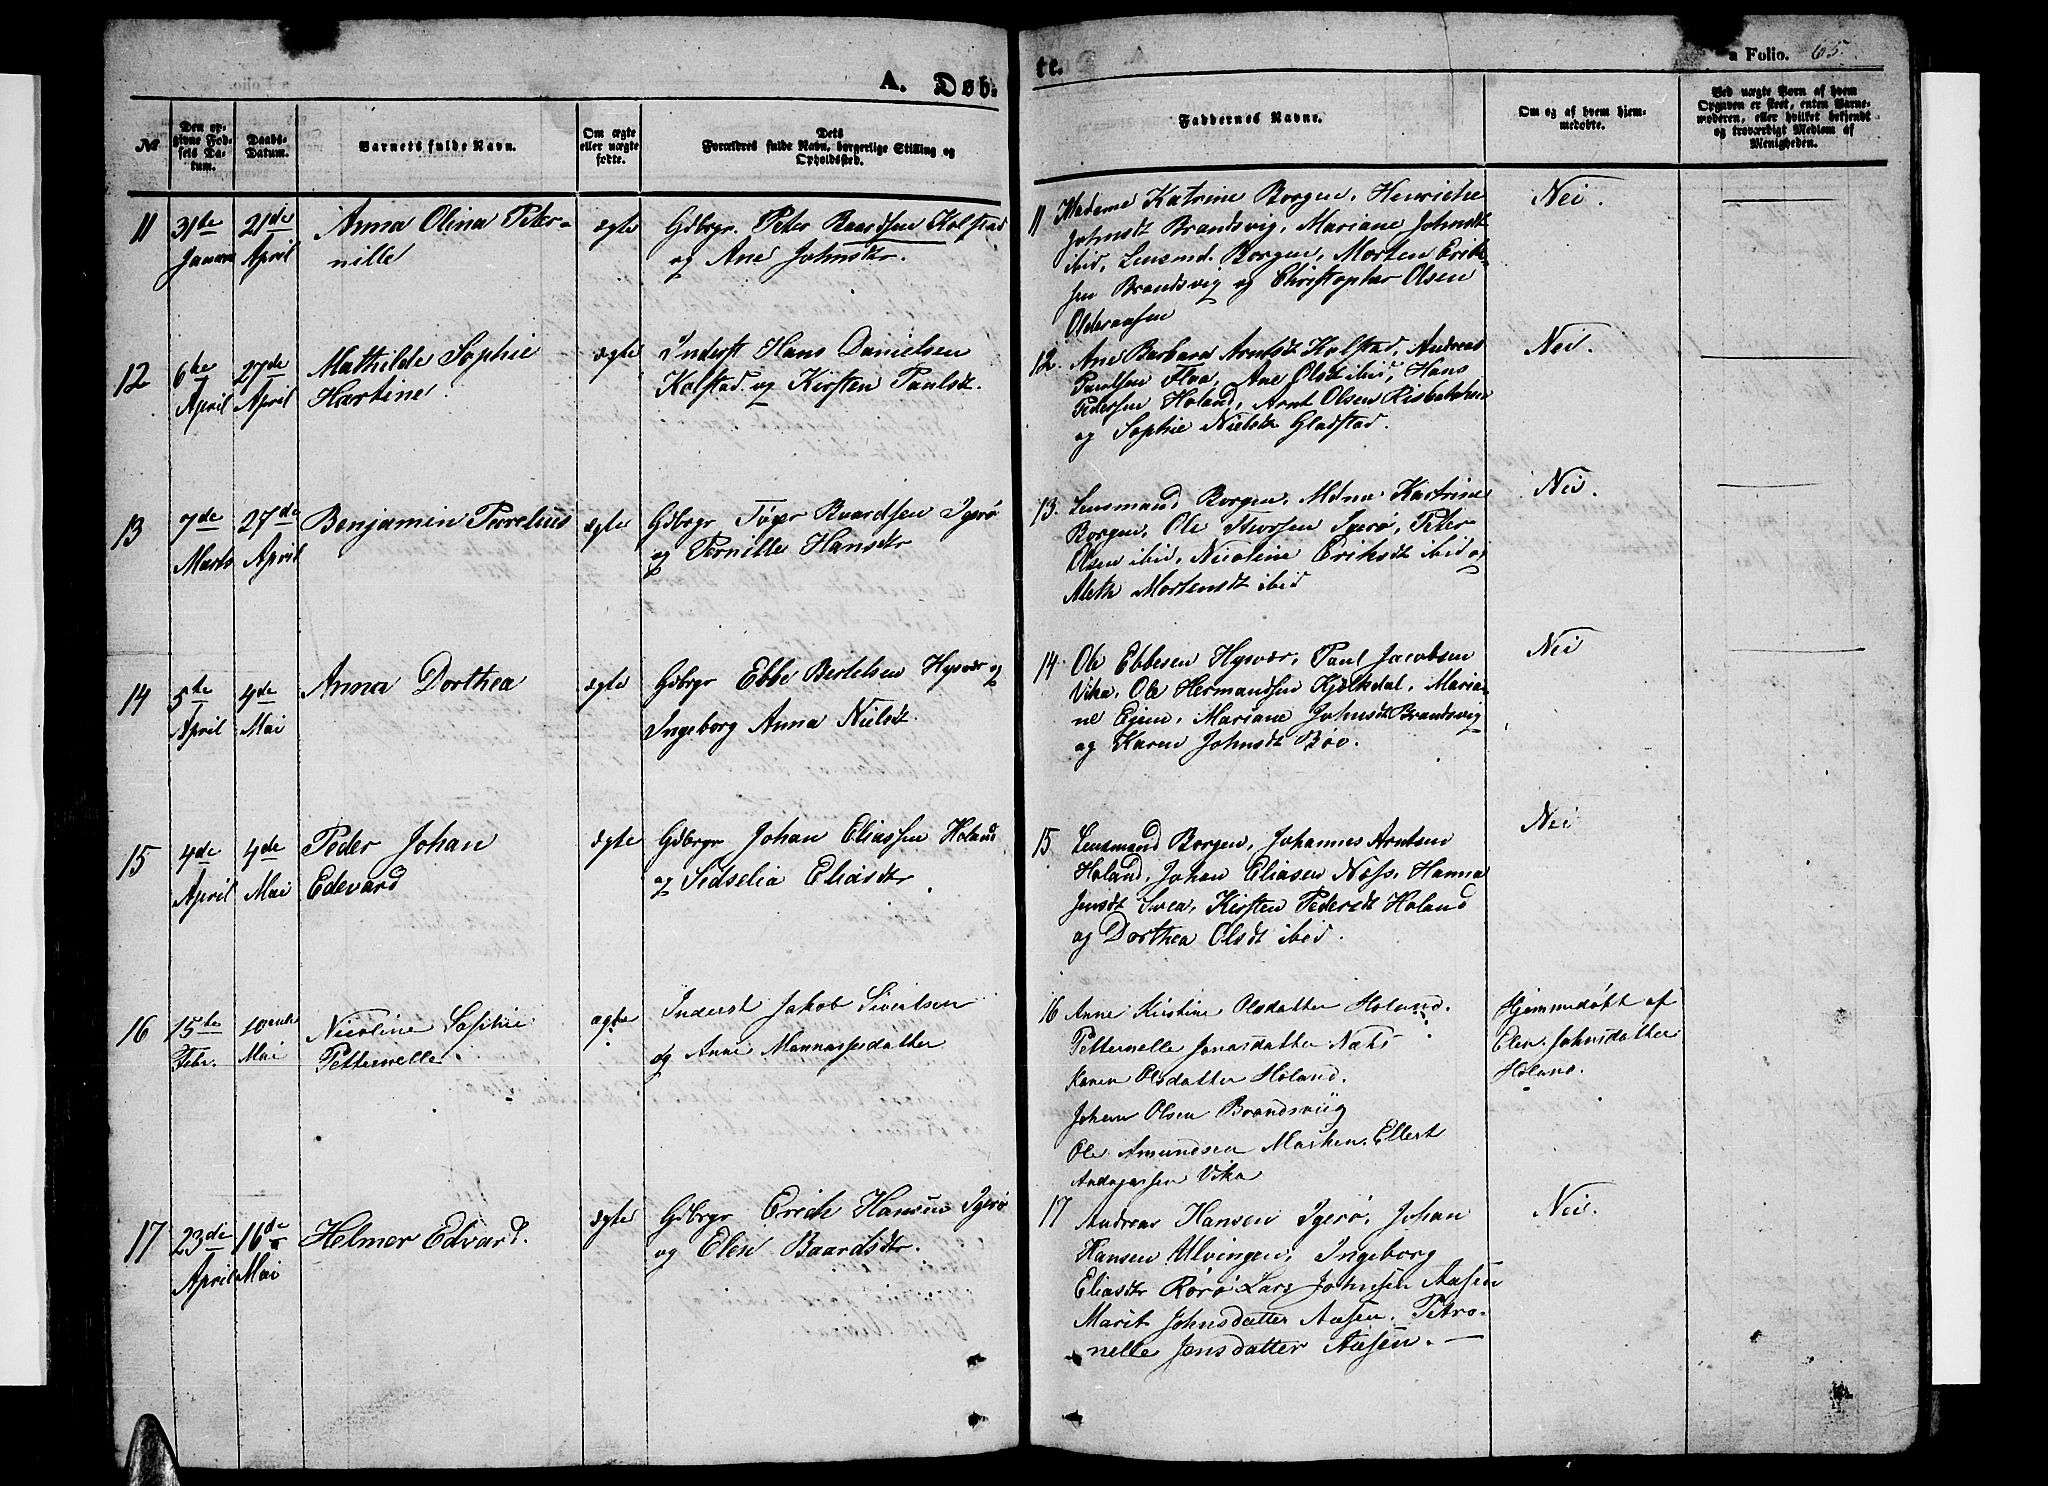 A. Døb-
te.
a Folio. 65.
№
Den op-
givne Fød-
sels Da-
tum.
Daabs-
Datum.
Barnets fulde Navn.
Om ægte
eller uægte
fødte.
Dets
Forældres fulde Navn, borgerlige Stilling og
Opholdssted.
Faddernes Navne.
Om og af hvem hjem-
medøbte.
Ved uægte Børn af hvem
Opgaven er skeet, enten Barne-
moderen, eller hvilket bekjendt
og troværdigt Medlem af
Menigheden.
11 31te Januar 21de April
Anna Olina Peter-
nille
ægte
Gdbrgr. Peter Baardsen Kolstad
og Ane Johnsdtr.
11 Madame Katrine Borgen, Henricke
Johnsdt Brandsvig, Mariane Johnsdt
ibid, Lensmd. Borgen, Morten Erik-
sen Brandsvig og Christopher Olsen
Olderaasen
Nei.
12 6te April 27de April
Mathilde Sophie
Hartine
ægte
Inderst Hans Danielsen
Kolstad og Kirsten Paulsdt.
12. Ane Barbara Arntsdt Kolstad, Andreas
Paulsen Floa, Ane Olsdt ibid, Hans
Pedersen Holand, Arnt Olsen
og Sophie Nielsdt Gladstad.
Nei.
13 7de Marts 27de April
Benjamin Pernelius
ægte
Gdbrgr Tøger Baardsen Igerø
og Pernille Hansdtr
13. Lensmand Borgen, Mdme Kartrine
Borgen, Ole Thorsen Igerø, Peter
Olsen ibid, Nicoline Eriksdt ibid og
Aleth Mortensdt ibid
Nei.
14 5te April 4de Mai
Anna Dorthea
ægte
Gdbrgr Ebbe Bertelsen Hysvær og
Ingeborg Anna Nielsdt.
14 Ole Ebbesen Hysvær, Paul Jacobsen
Vika, Ole Hermandsen Kjelkdal, Maria-
ne Ejem, Mariane Johnsdt Brandsvig
og Karen Johnsdt Bøe.
Nei
15 4de April 4de Mai
Peder Johan
Edevard
ægte
Gdbrgr Johan Eliassen Holand
og Sidselia Eliasdtr.
15 Lensmand Borgen, Johannes Arntsen
Holand, Johan Eliasen Næss, Hanna
Jensdt Svea, Kirsten Pedersdt Holand
og Dorthea Olsdt ibid.
Nei
16 15te Febr. 10ende Mai
Nicoline Sophie
Petternelle.
ægte
Inderst Jakob Sivertsen
og Anne Mannassesdatter
16 Anne Kirstine Olsdatter Holand.
Petternelle Jonasdatter Næss
Karen Olsdatter Holand.
Johan Olsen Brandsviig
Ole Amundsen Marken, Ellert
Andreassen Vika
Hjemmedøbt af
Elen Johnsdatter
Holand.
17 23de April 16de Mai
Helmer Edvard.
ægte
Gdbrgr Erich Hansen Igerø
og Elen Baardsdtr.
17 Andreas Hansen Igerø, Johan
Hansen Ulvingen, Ingeborg
Eliasdtr Rørø Lars Johnsen Aasen
Marit Johnsdatter Aasen. Petro-
nelle Jonsdatter Aasen. —
Nei.